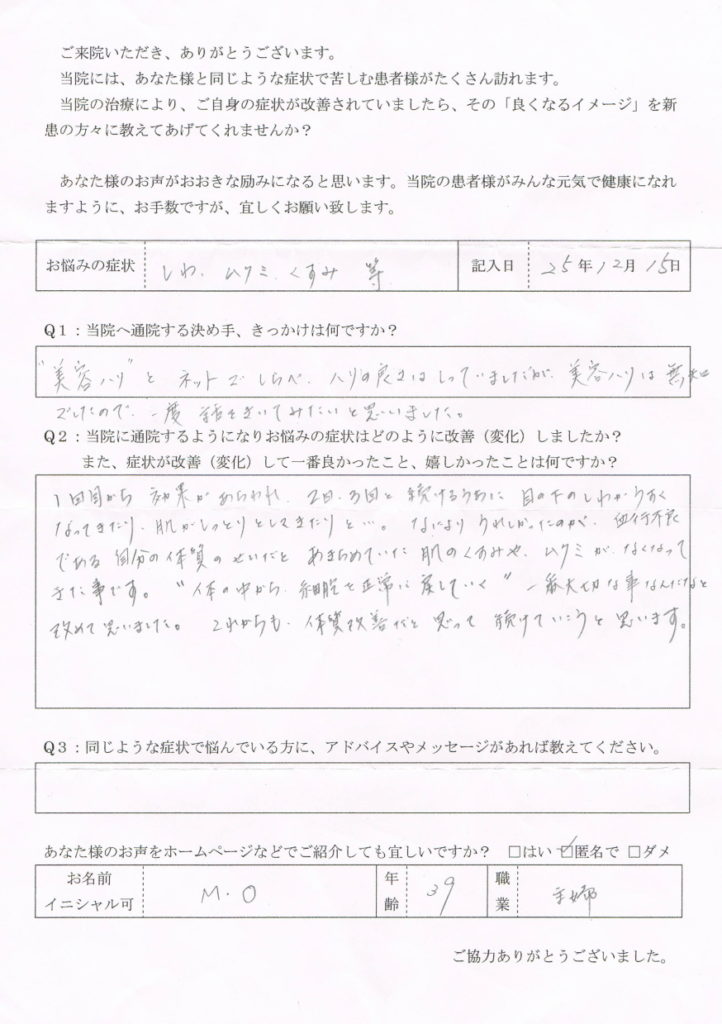 ご来院いただき、ありがとうございます。
当院には、あなた様と同じような症状で苦しむ患者様がたくさん訪れます。
当院の治療により、ご自身の症状が改善されていましたら、その「良くなるイメージ」を新
患の方々に教えてあげてくれませんか？
あなた様のお声がおおきな励みになると思います。当院の患者様がみんな元気で健康になれ
ますように、お手数ですが、宜しくお願い致します。
お悩みの症状 しわ、ムクミ、くすみ 等 記入日 25年12月15日
Q1：当院へ通院する決め手、きっかけは何ですか？
"美容ハリ"と ネットでしらべ、ハリの良さはしっていましたが、美容ハリは無知
でしたので、一度 話をきいてみたいと思いました。
Q2：当院に通院するようになりお悩みの症状はどのように改善（変化）しましたか？
また、症状が改善（変化）して一番良かったこと、嬉しかったことは何ですか？
1回目から 効果があらわれ、2回、3回と 続けるうちに 目の下のしわがうすく
なってきたり、肌がしっとりとしてきたりと…。なにより うれしかったのが、血行不良
である 自分の体質のせいだと あきらめていた 肌のくすみや、ムクミが、なくなって
きた事です。"体の中から、細胞を正常に戻していく" 一番大切な事なんだなと
改めて思いました。 これからも、体質改善だと思って 続けていこうと思います。
Q3：同じような症状で悩んでいる方に、アドバイスやメッセージがあれば教えてください。
あなた様のお声をホームページなどでご紹介しても宜しいですか？ □はい ☑匿名で □ダメ
お名前 イニシャル可 M.O 年齢 39 職業 主婦
ご協力ありがとうございました。